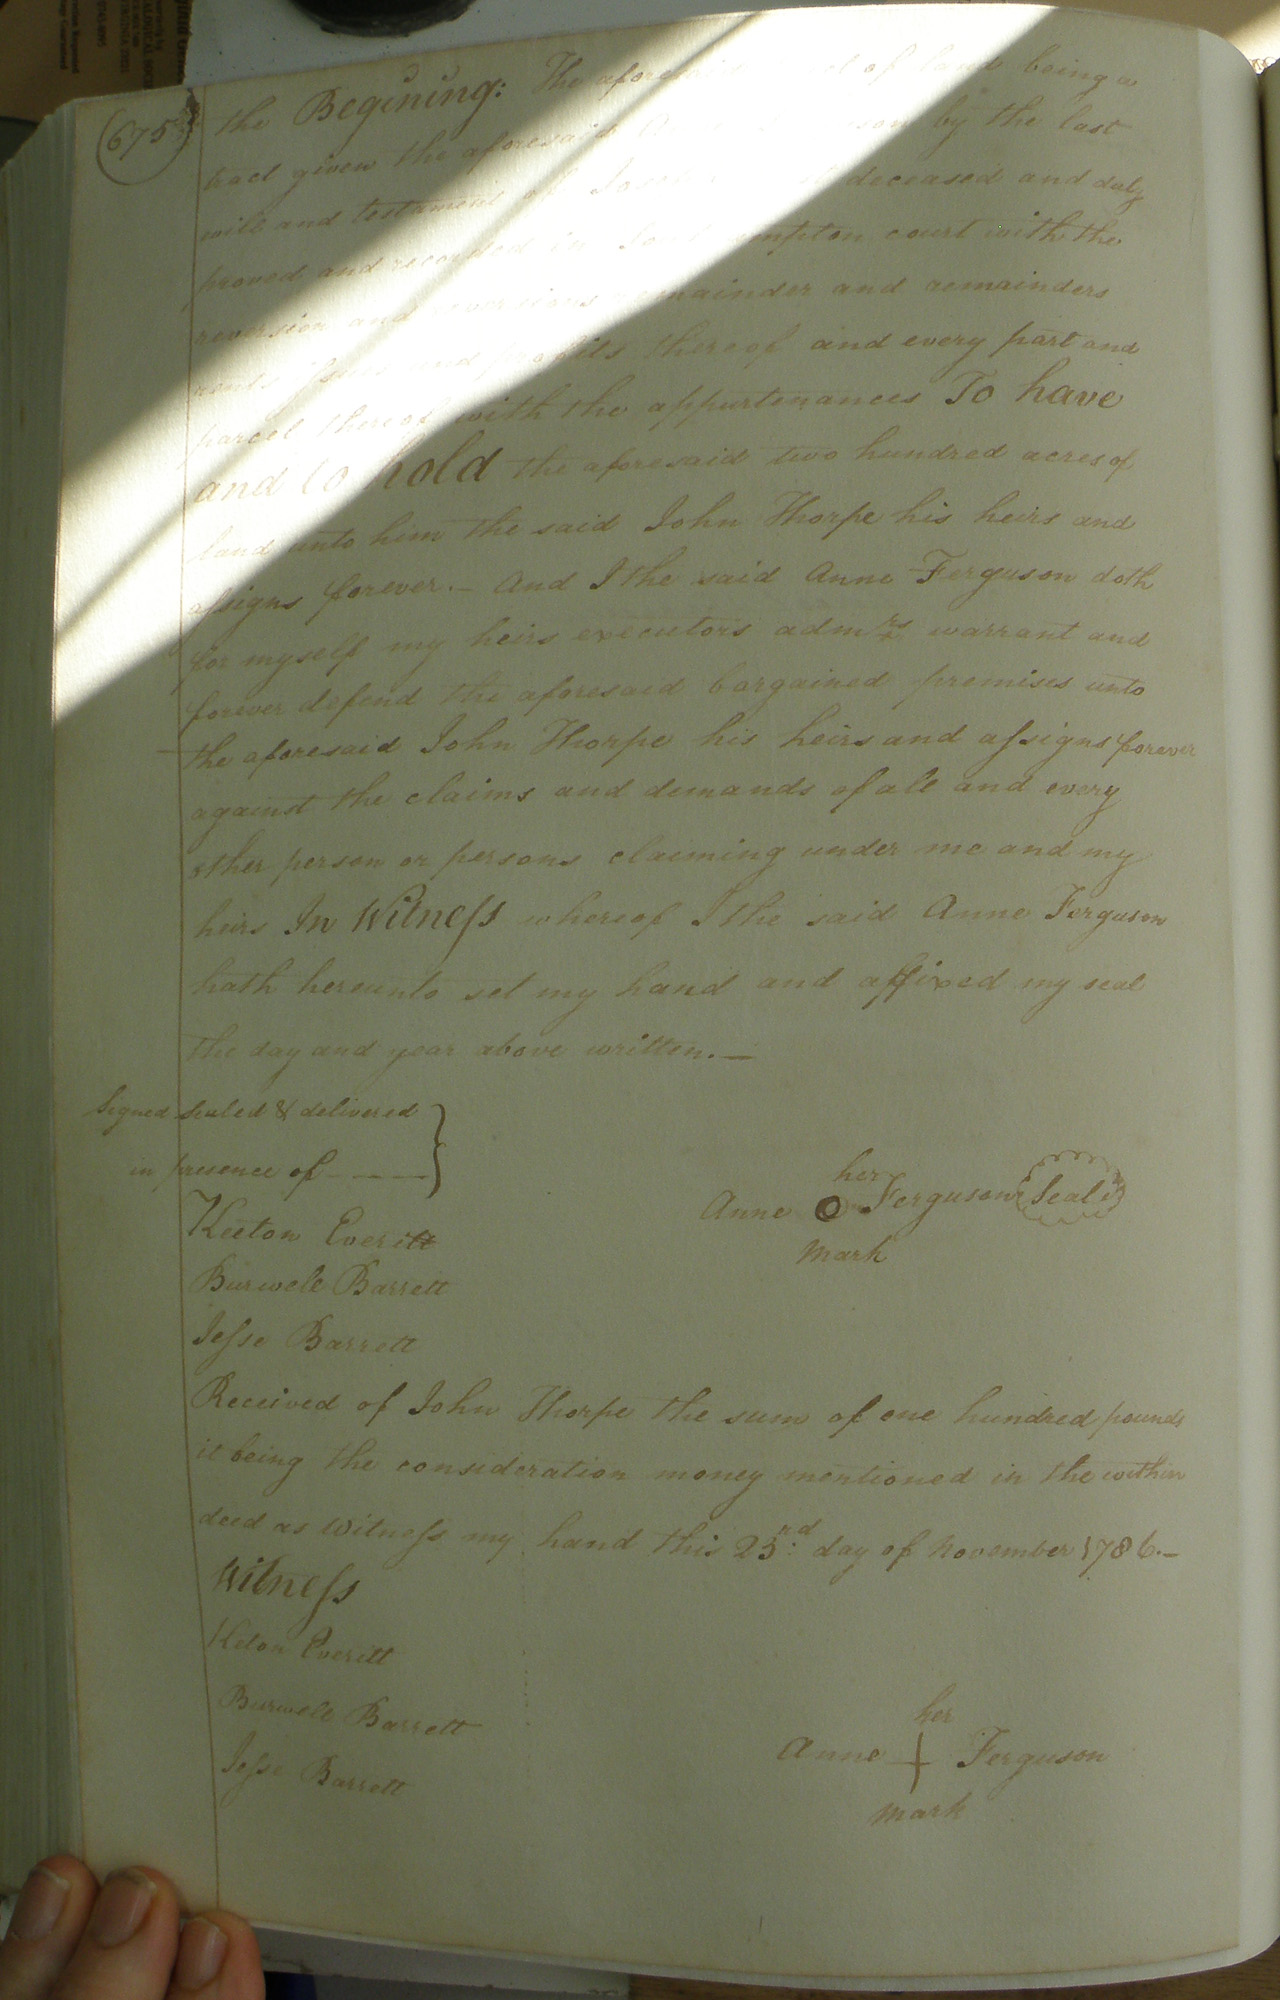 675
the Begining: The aforesaid of land being a
tract given the aforesaid by the last
will and testament of Joseph deceased and duly
proved and recorded in Southampton court with the
reversion and reversions remainder and remainders
rents issues and profits thereof and every part and
parcel thereof with the appurtenances To have
and to hold the aforesaid two hundred acres of
land unto him the said John Thorpe his heirs and
assigns forever.— And I the said Anne Ferguson doth
for myself my heirs executors admrs warrant and
forever defend the aforesaid bargained premises unto
the aforesaid John Thorpe his heirs and assigns forever
against the claims and demands of all and every
other person or persons claiming under me and my
heirs In Witness whereof I the said Anne Ferguson
hath hereunto set my hand and affixed my seal
the day and year above written.—
Signed sealed & delivered
in presence of
her
Anne O Ferguson Seal
mark
Keeton Everitt
Burwell Barrett
Jesse Barrett
Received of John Thorpe the sum of one hundred pounds
it being the consideration money mentioned in the within
deed as Witness my hand this 23rd: day of November 1786.—
Witness
Keton Everitt
Burwell Barrett
Jesse Barrett
her
Anne + Ferguson
mark